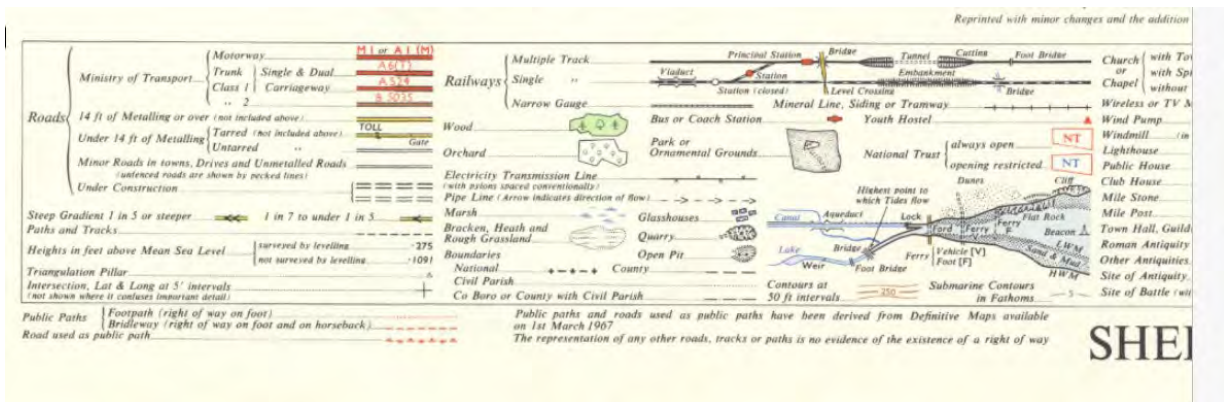 Reprinted with minor changes and the addition
Roads
Ministry of Transport
Motorway
M1 or A1(M)
Trunk
A6(T)
Single & Dual
Carriageway
Class 1
A 524
" 2
B 5035
14 ft of Metalling or over (not included above)
Under 14 ft of Metalling
Tarred (not included above)
TOLL
Untarred "
Gate
Minor Roads in towns, Drives and Unmetalled Roads
(unfenced roads are shown by pecked lines)
Under Construction
Steep Gradient 1 in 5 or steeper
1 in 7 to under 1 in 5
Paths and Tracks
Heights in feet above Mean Sea Level
surveyed by levelling
·275
not surveyed by levelling
·1091
Triangulation Pillar
Intersection, Lat & Long at 5' intervals
(not shown where it confuses important detail)
Railways
Multiple Track
Single "
Narrow Gauge
Principal Station
Bridge
Tunnel
Cutting
Foot Bridge
Viaduct
Station
Station (closed)
Level Crossing
Embankment
Bridge
Mineral Line, Siding or Tramway
Wood
Orchard
Bus or Coach Station
Park or
Ornamental Grounds
Youth Hostel
National Trust
always open
NT
opening restricted
NT
Electricity Transmission Line
(with pylons spaced conventionally)
Pipe Line (Arrow indicates direction of flow)
Marsh
Bracken, Heath and
Rough Grassland
Glasshouses
Quarry
Open Pit
Boundaries
National
County
Civil Parish
Co Boro or County with Civil Parish
Highest point to
which Tides flow
Dunes
Cliff
Canal
Aqueduct
Lock
Ford
Ferry
Ferry
F
Flat Rock
Beacon
Lake
Weir
Bridge
Foot Bridge
Ferry
Vehicle [V]
Foot [F]
LWM
Sand & Mud
HWM
Contours at
50 ft intervals
250
Submarine Contours
in Fathoms
5
Church
or
Chapel
with To
with Spi
without
Wireless or TV M
Wind Pump
Windmill (in
Lighthouse
Public House
Club House
Mile Stone
Mile Post
Town Hall, Guild
Roman Antiquity
Other Antiquities
Site of Antiquity
Site of Battle (wi
Public Paths
Footpath (right of way on foot)
Bridleway (right of way on foot and on horseback)
Road used as public path
Public paths and roads used as public paths have been derived from Definitive Maps available
on 1st March 1967
The representation of any other roads, tracks or paths is no evidence of the existence of a right of way
SHE